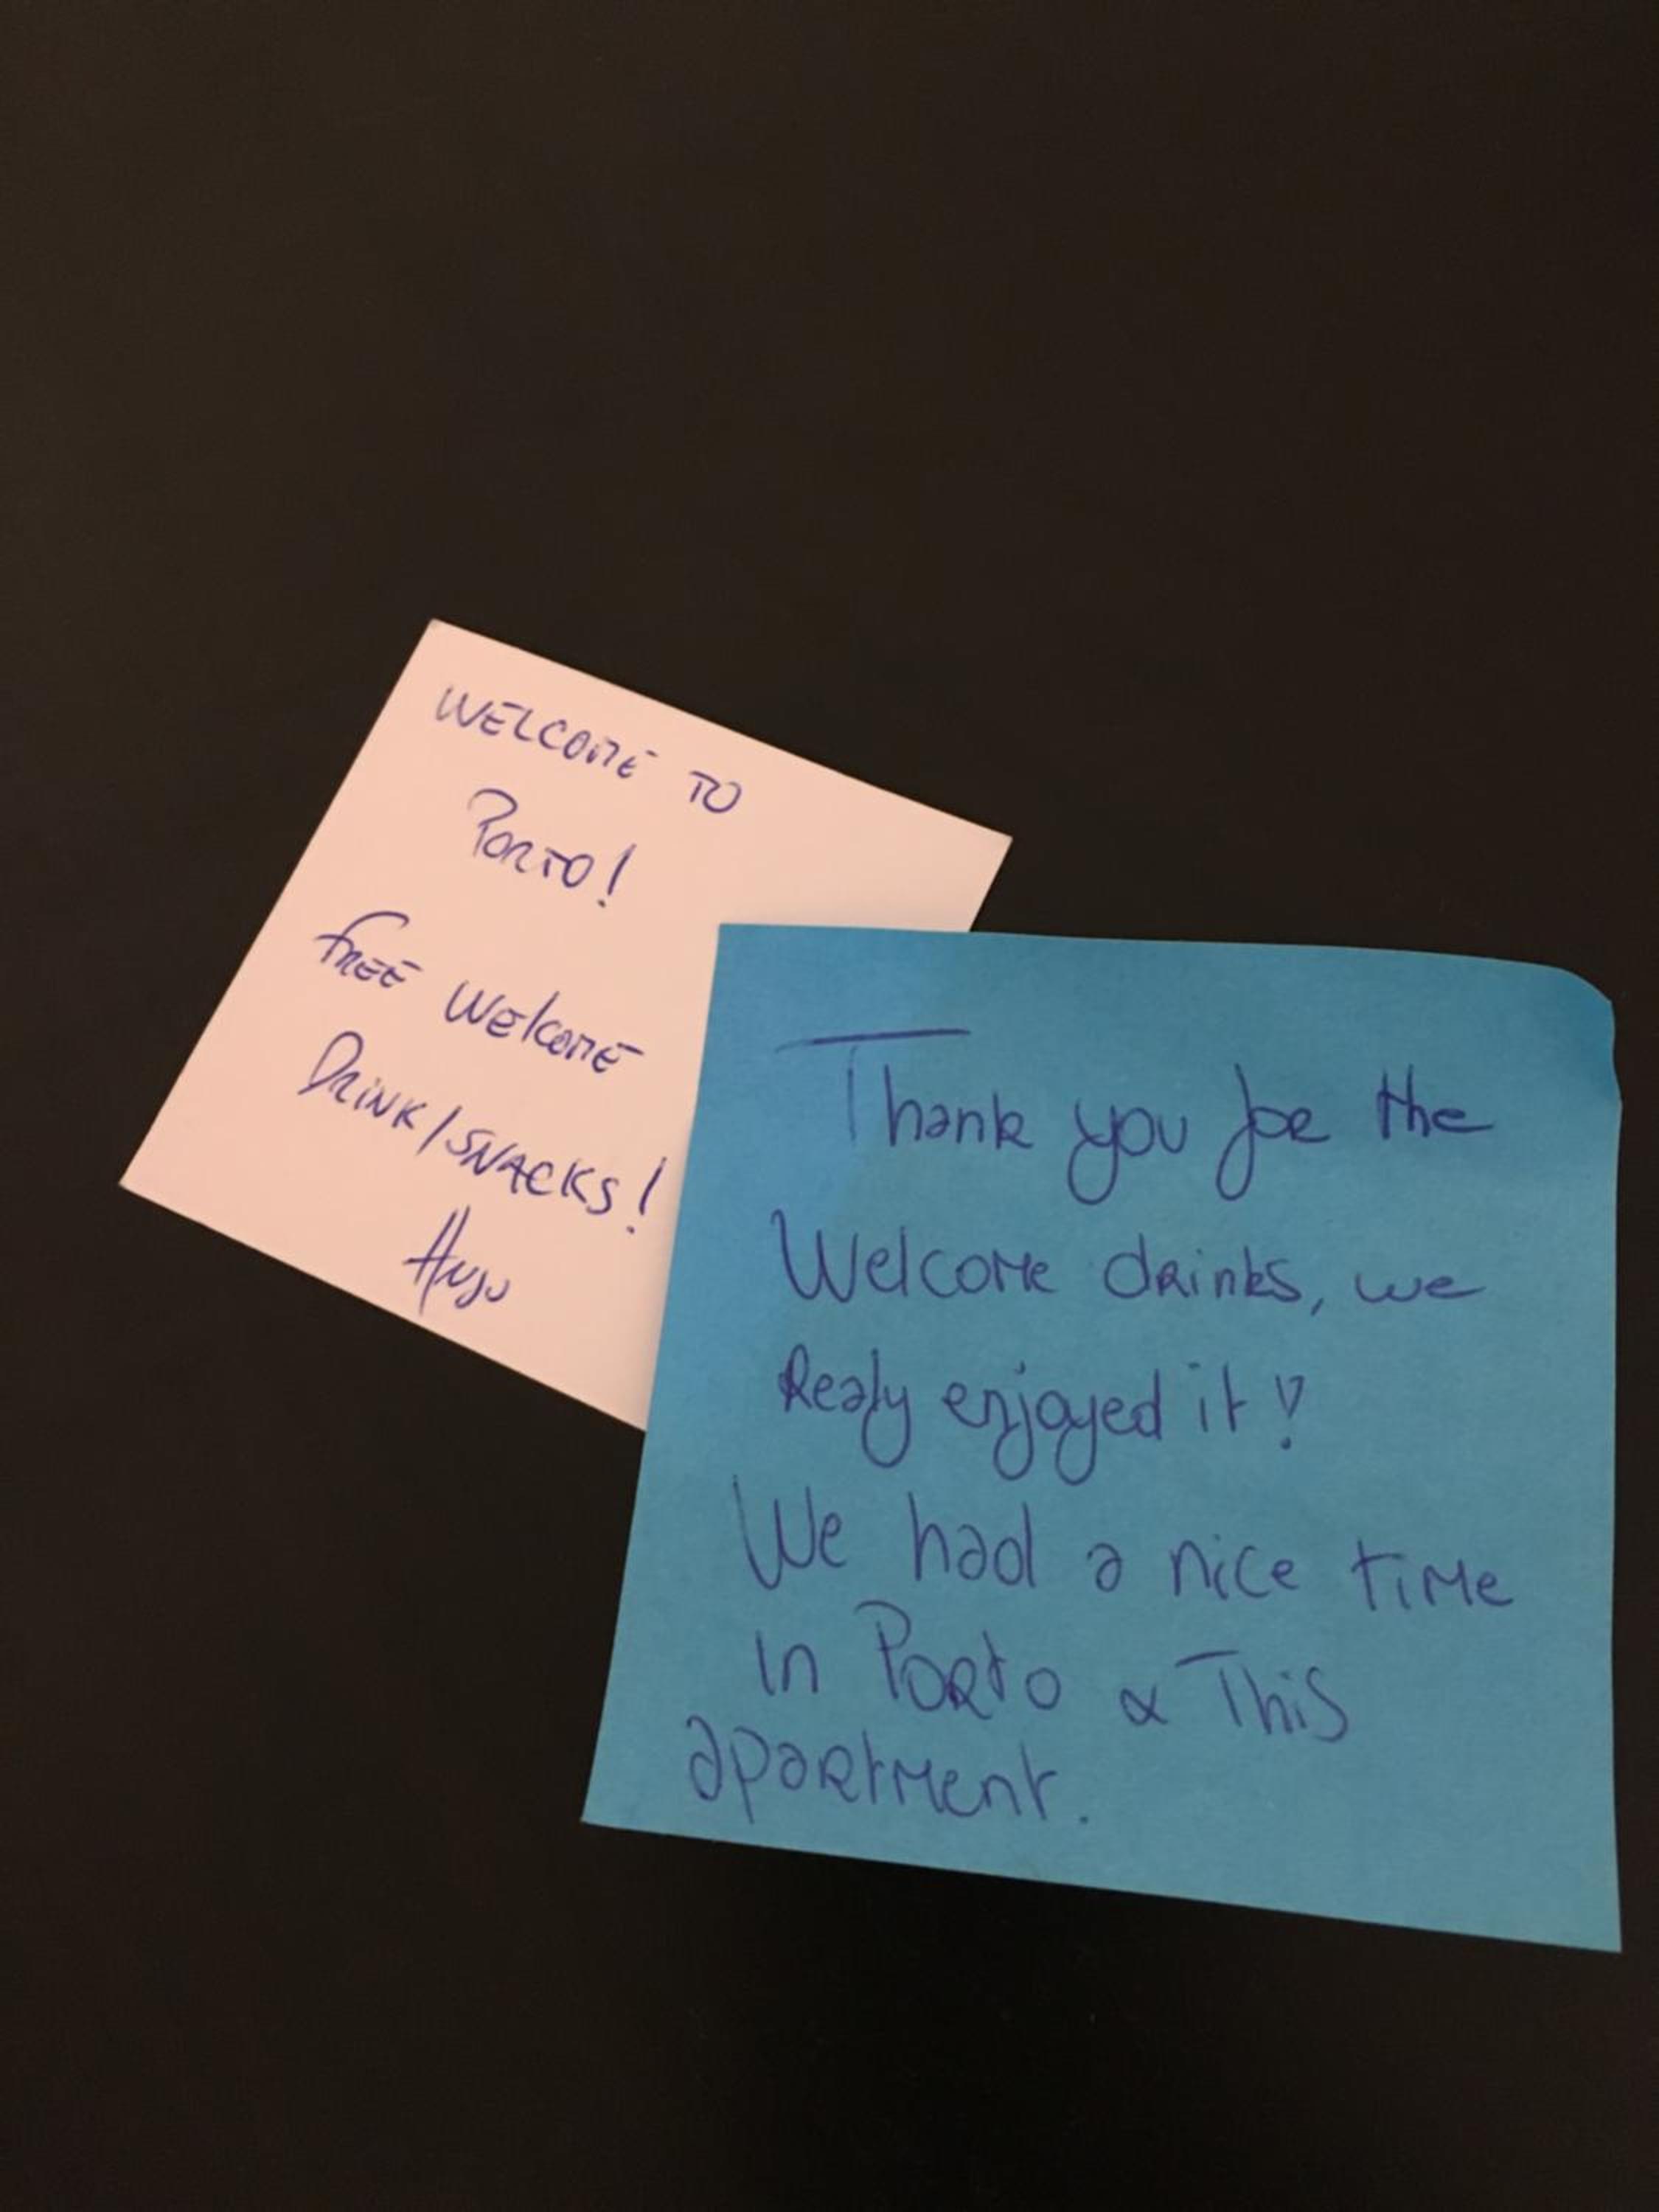 WELCOME TO
PORTO!
FREE WELCOME
DRINK/SNACKS!
Hugo
Thank you for the
Welcome drinks, we
Realy enjoyed it!
We had a nice time
in Porto & This
apartment.